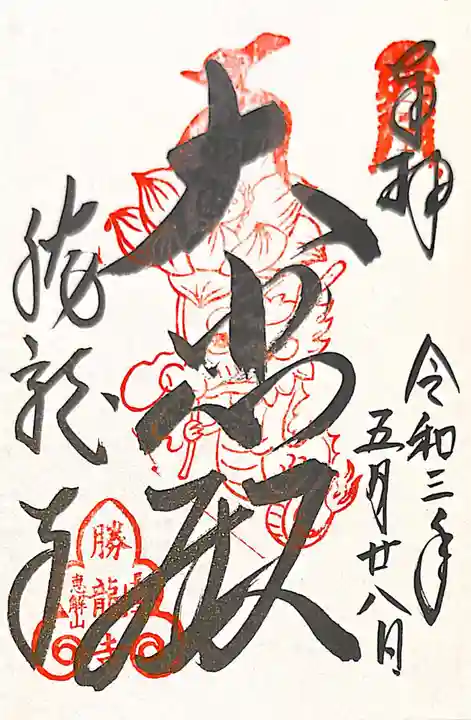 奉拝
令和三年
五月廿八日
大悲殿
勝龍寺
勝龍寺
恵解山